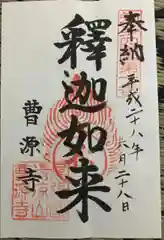 奉納
平成二十八年
六月二十八日
釋迦如来
曹源寺